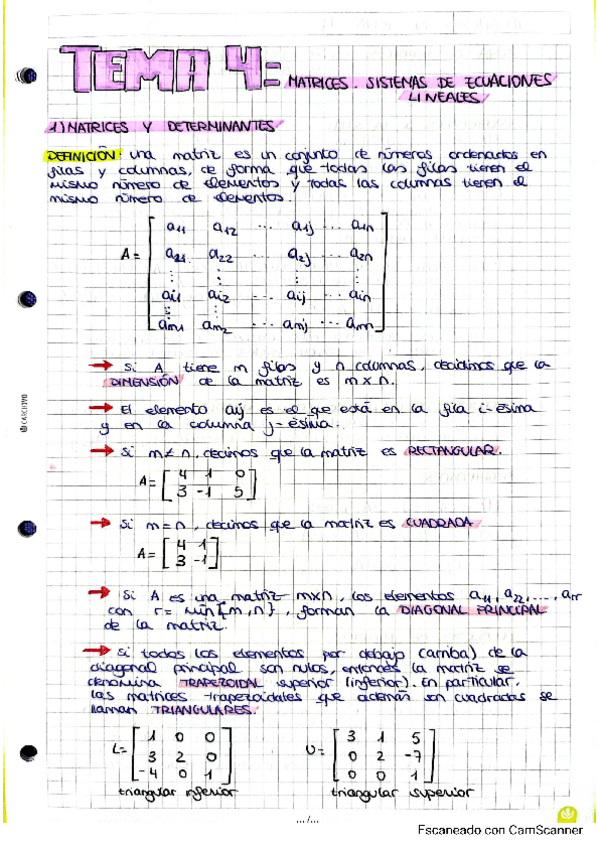 TEMA 4: MATRICES. SISTEMAS DE ECUACIONES
LINEALES
1) MATRICES Y DETERMINANTES
DEFINICIÓN: una matriz es un conjunto de números ordenados en
filas y columnas, de forma que todas las filas tienen el
mismo número de elementos y todas las columnas tienen el
mismo número de elementos.
a11 a12 ... a1j ... a1n
A = a21 a22 ... a2j ... a2n
⋮ ⋮ ⋮ ⋮
ai1 ai2 ... aij ... ain
am1 am2 ... amj ... amn
→ Si A tiene m filas y n columnas, decidimos que la
DIMENSIÓN de la matriz es m x n.
→ El elemento aij es el que está en la fila i-ésima
y en la columna j-ésima.
→ Si m≠n, decimos que la matriz es RECTANGULAR.
A = [4 1 0
3 -1 5]
→ Si m=n, decimos que la matriz es CUADRADA
A = [4 1
3 -1]
→ Si A es una matriz mxn, los elementos a11, a22, ..., arr
con r = mín{m,n}, forman la DIAGONAL PRINCIPAL
de la matriz.
→ Si todos los elementos por debajo (arriba) de la
diagonal principal son nulos, entonces la matriz se
denomina TRAPEZOIDAL superior (inferior). En particular,
las matrices trapezoidales que además son cuadradas se
llaman TRIANGULARES.
L = [1 0 0 U = [3 1 5
3 2 0 0 2 -7
-4 0 1] 0 0 1]
triangular inferior triangular superior
.../...
Escaneado con CamScanner